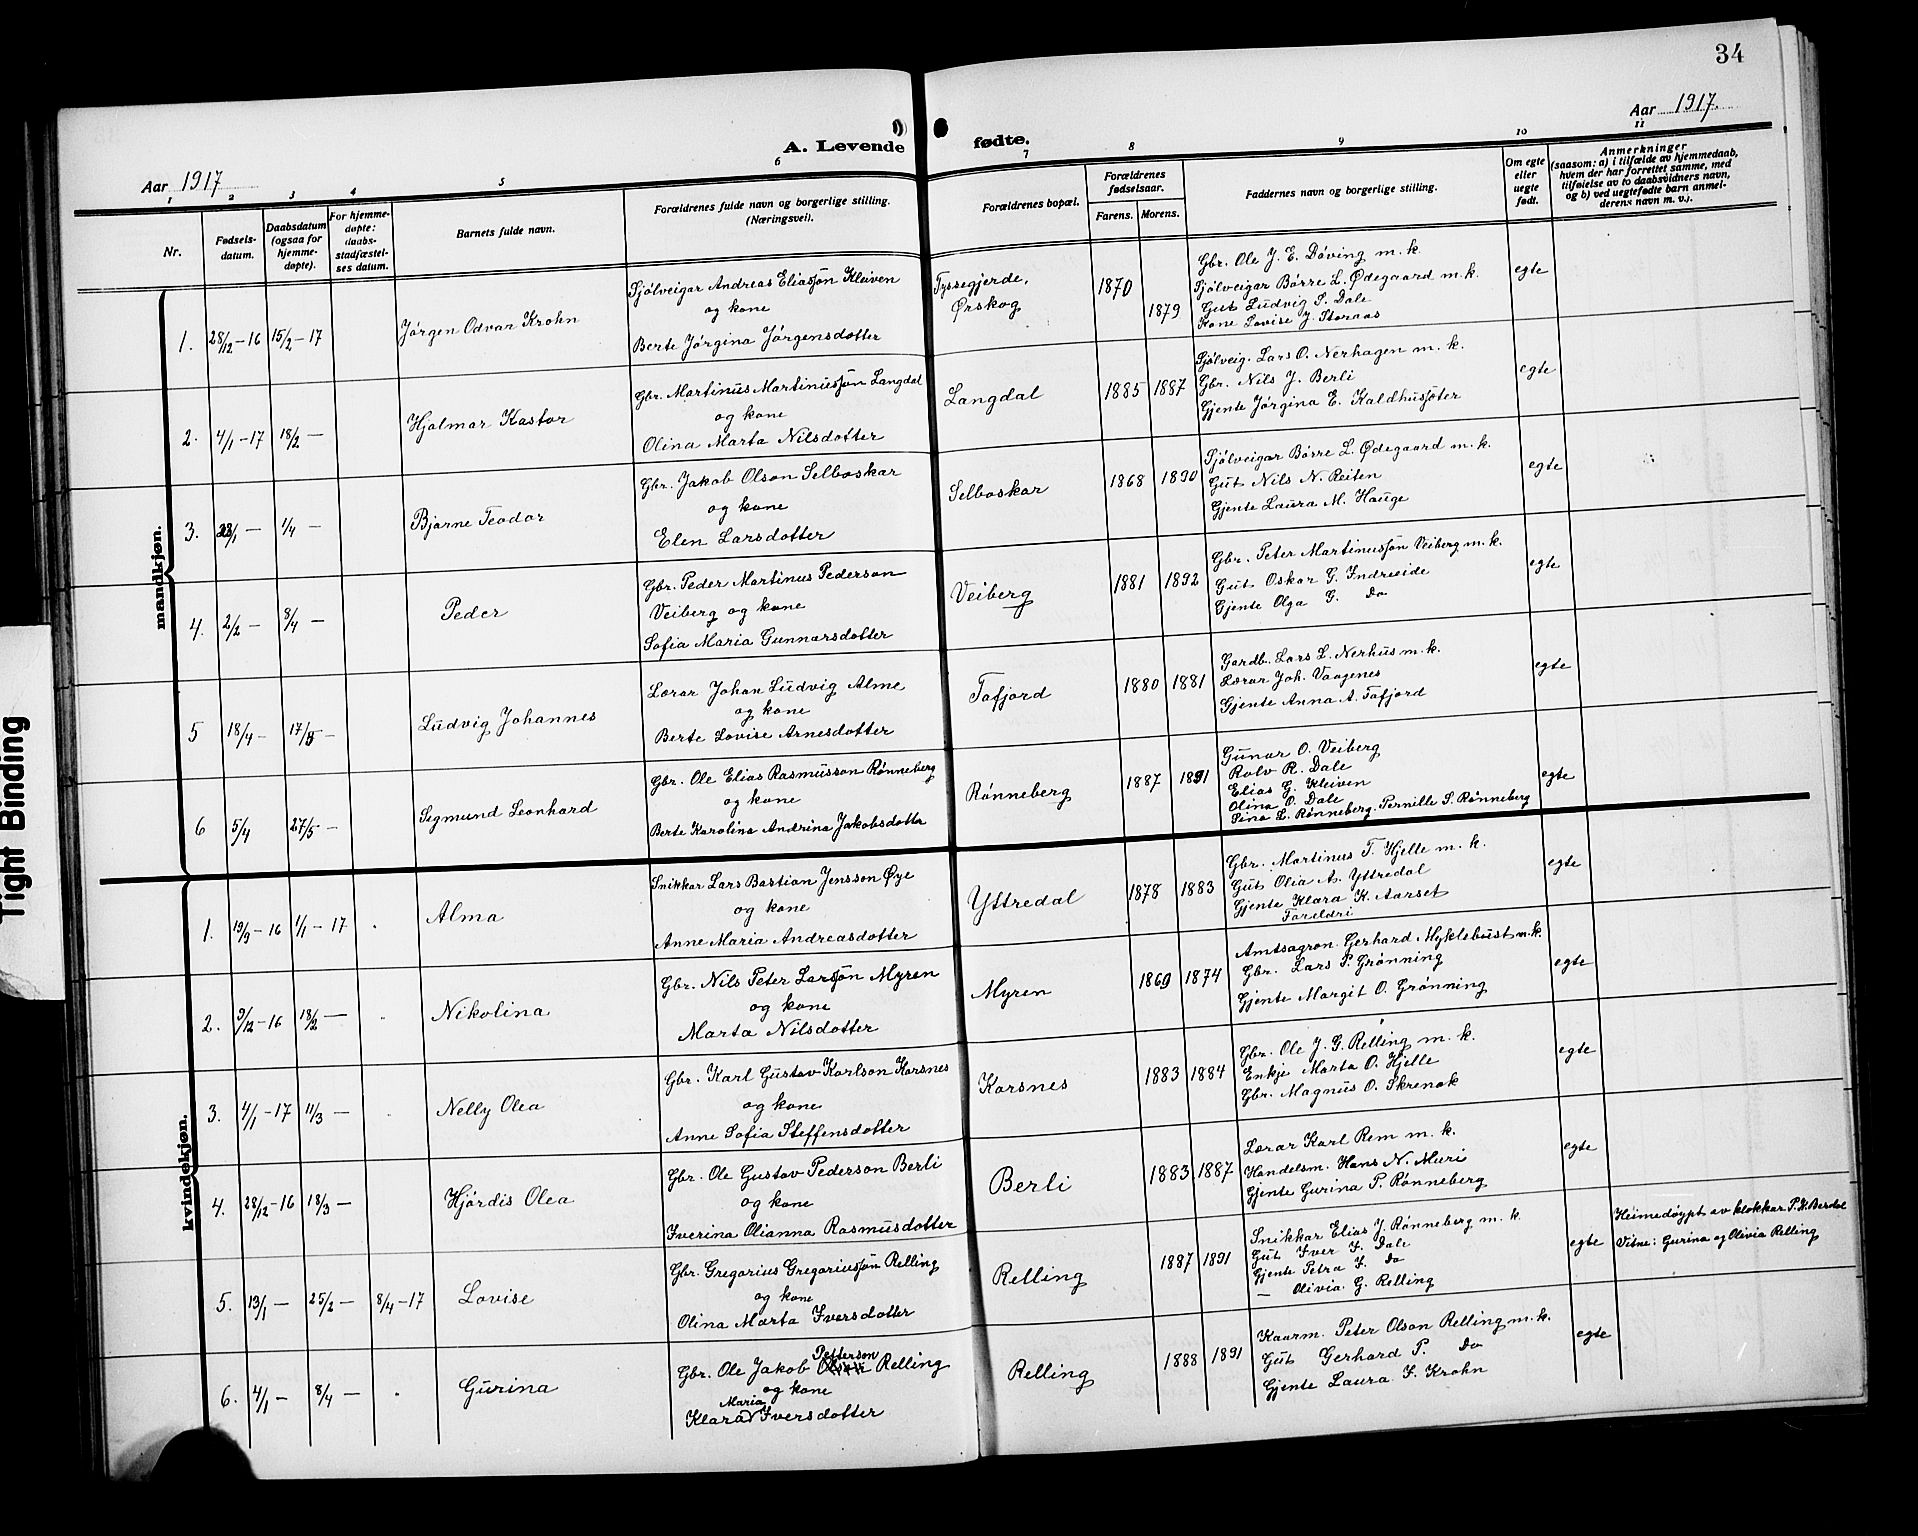 34
Aar 1917
A. Levende fødte.
Aar 1917.
1 2 3 4 5 6 7 8 9 10 11
Nr.
Fødsels-
datum.
Daabsdatum
(ogsaa for
hjemme-
døpte).
For hjemme-
døpte:
daabs-
stadfæstel-
ses datum.
Barnets fulde navn.
Forældrenes fulde navn og borgerlige stilling.
(Næringsvei).
Forældrenes bopæl.
Forældrenes
fødselsaar.
Farens. Morens.
Faddernes navn og borgerlige stilling.
Om egte
eller
uegte
født.
Anmerkninger
(saasom: a) i tilfælde av hjemmedaab,
hvem der har forrettet samme, med
tilføielse av to daabsvidners navn,
og b) ved uegtefødte barn anmel-
derens navn m. v.).
mandkjøn.
1. 28/12-16 15/2-17 Jørgen Odvar Krohn
Sjølveigar Andreas Eliassøn Kleiven
og kone
Berte Jørgina Jørgensdotter
Tyssegjerde,
Ørskog
1870 1879
Gbr. Ole J. E. Døving m. k.
Sjølveigar Børre L. Ødegaard m. k.
Gut Ludvig S. Dale
Kone Lovise J. Storaas
egte
2. 4/1-17 18/2 — Hjalmar Kastor
Gbr. Martinus Martinussøn Langdal
og kone
Olina Marta Nilsdotter
Langdal
1885 1887
Sjølveig. Lars O. Nerhagen m. k.
Gbr. Nils J. Berli
Gjente Jørgina E. Kaldhussøter
egte
3. /1 — 1/4 — Bjarne Teodor
Gbr. Jakob Olson Selboskar
og kone
Elen Larsdotter
Selboskar
1868 1890
Sjølveigar Børre L. Ødegaard m. k.
Gut Nils N. Reiten
Gjente Laura M. Hauge
egte
4. 2/2 — 8/4 — Peder
Gbr. Peder Martinus Pederson
Veiberg og kone
Sofia Maria Gunnarsdotter
Veiberg
1881 1892
Gbr. Peter Martinussøn Veiberg m. k.
Gut Oskar G. Indreeide
Gjente Olga G. Do
egte
5 18/4 — 17/5 — Ludvig Johannes
Lærar Johan Ludvig Alme
og kone
Berte Lovise Arnesdotter
Tafjord
1880 1881
Gardb. Lars L. Nerhus m. k.
Lærar Joh. Vaagenes
Gjente Anna A. Tafjord
egte
6 5/4 27/5 — Sigmund Leonhard
Gbr. Ole Elias Rasmusson Rønneberg
og kone
Berte Karolina Andrina Jakobsdotter
Rønneberg
1887 1891
Gunar O. Veiberg
Rolv R. Dale
Elias G. Kleiven
Olina O. Dale
Sina L. Rønneberg. Pernille S. Rønneberg
egte
kvindekjøn.
1. 19/9-16 1/1-17 Alma
Snikkar Lars Bastian Jensson Øye
og kone
Anne Maria Andreasdotter
Yttredal
1878 1883
Gbr. Martinus T. Hjelle m. k.
Gut Olia A. Yttredal
Gjente Klara K. Aarset
Foreldri
egte
2. 9/12-16 18/2 — Nikolina
Gbr. Nils Peter Larssøn Myren
og kone
Marta Nilsdotter
Myren
1869 1874
Amtsagron. Gerhard Myklebust m. k.
Gbr. Lars P. Grønning
Gjente Margit O. Grønning
egte
3. 4/1-17 11/3 — Nelly Olea
Gbr. Karl Gustav Karlson Korsnes
og kone
Anne Sofia Steffensdotter
Korsnes
1883 1884
Gbr. Ole J. G. Relling m. k.
Enkje Marta O. Hjelle
Gbr. Magnus O. Skrenak
egte
4. 28/12-16 18/3 — Hjørdis Olea
Gbr. Ole Gustav Pederson Berli
og kone
Iverina Olianna Rasmusdotter
Berli
1883 1887
Lærar Karl Rem m. k.
Handelsm. Hans N. Muri
Gjente Gurina P. Rønneberg
egte
5. 13/1 — 25/2 — 8/4-17 Lovise
Gbr. Gregorius Gregoriussøn Relling
og kone
Olina Marta Iversdotter
Relling
1887 1891
Snikkar Elias J. Rønneberg m. k.
Gut Iver I. Dale
Gjente Petra I. Do
— Olivia G. Relling
egte
Heimedøypt av klokkar P. K. Berdal
Vitne: Gurina og Olivia Relling
6. 4/1 — 8/4 — Gurina
Gbr. Ole Jakob Petterson Relling
og kone
Klara Maria Iversdotter
Relling
1888 1891
Kaarm. Peter Olson Relling m. k.
Gut Gerhard P. Do
Gjente Laura I. Krohn
egte
Tight Binding